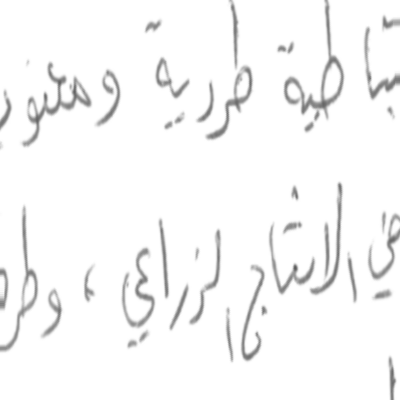 تباطية طردية ومعنو
في الانتاج الزراعي ، وطر